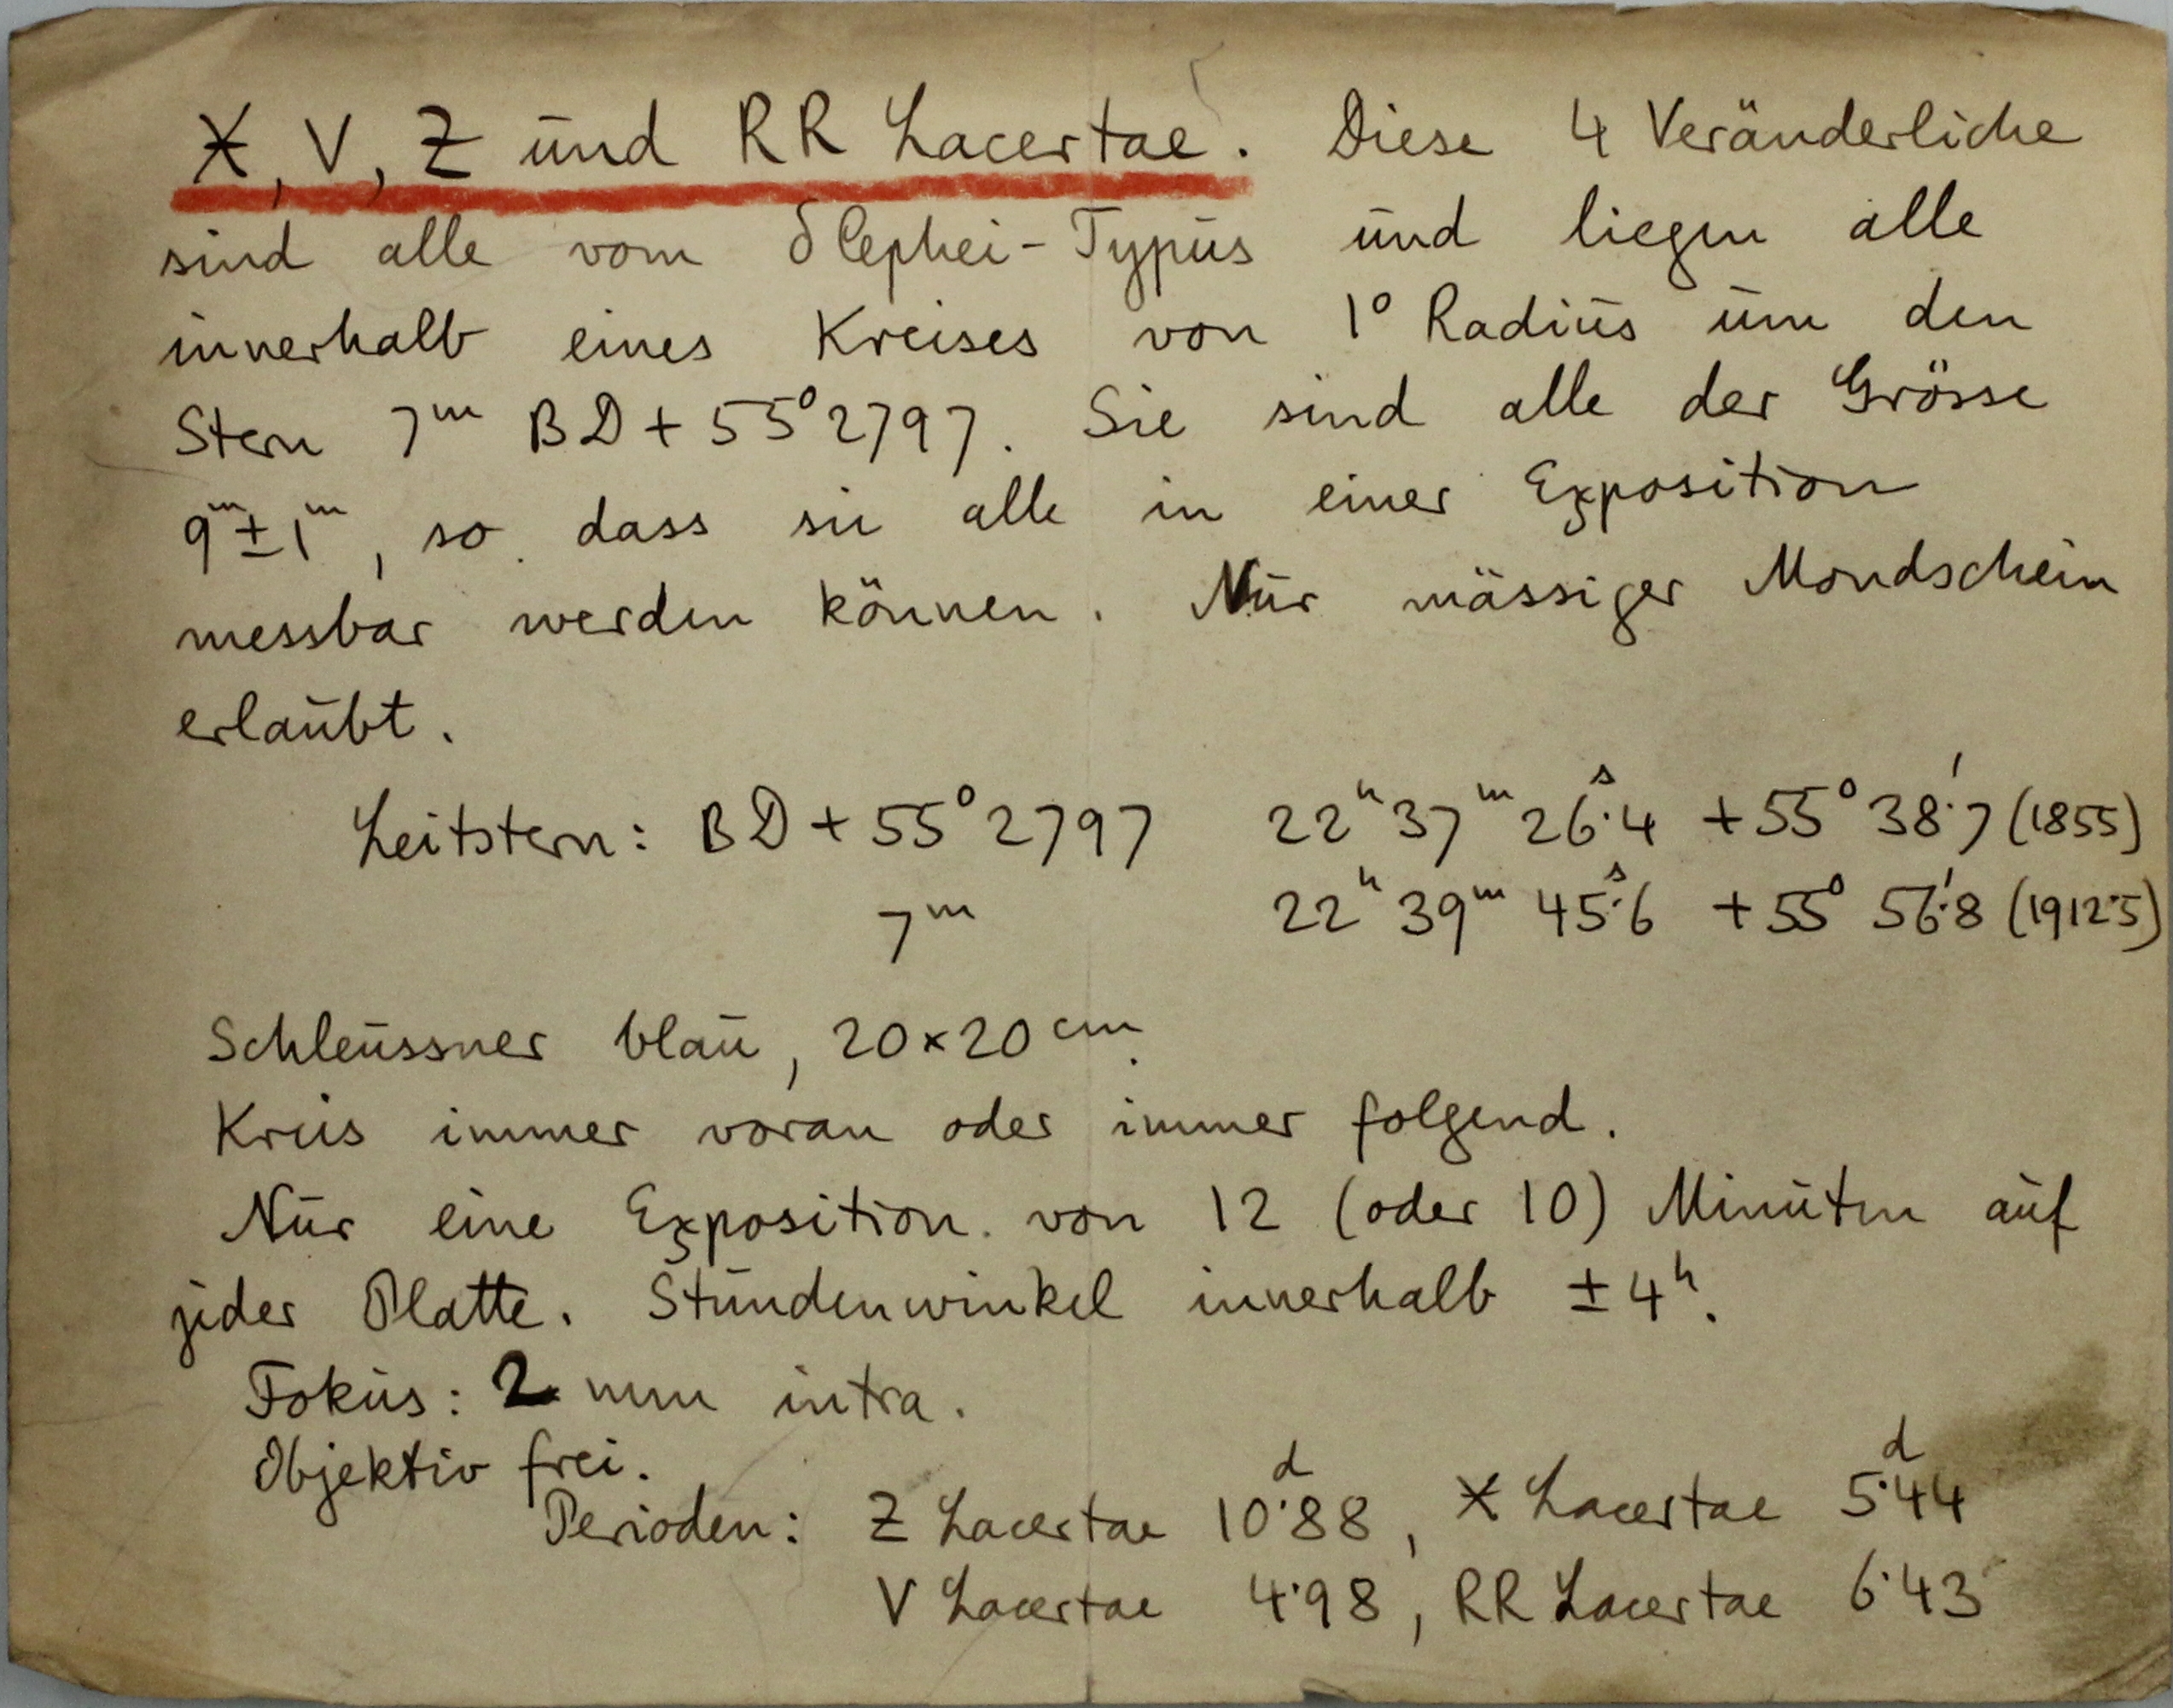 X, V, Z und RR Lacertae. Diese 4 Veränderliche
sind alle vom δ Cephei-Typus und liegen alle
innerhalb eines Kreises von 1° Radius um den
Stern 7ᵐ BD + 55° 2797. Sie sind alle der Grösse
9ᵐ ± 1ᵐ, so dass sie alle in einer Exposition
messbar werden können. Nur mässiger Mondschein
erlaubt.
Leitstern: BD + 55° 2797 22ʰ 37ᵐ 26ˢ.4 + 55° 38'.7 (1855)
7ᵐ 22ʰ 39ᵐ 45ˢ.6 + 55° 56'.8 (1912.5)
Schleussner blau, 20 × 20 cm.
Kreis immer voran oder immer folgend.
Nur eine Exposition von 12 (oder 10) Minuten auf
jeder Platte. Stundenwinkel innerhalb ± 4ʰ.
Fokus: 2 mm intra.
Objektiv frei.
Perioden: Z Lacertae 10ᵈ.88, X Lacertae 5ᵈ.44
V Lacertae 4.98, RR Lacertae 6.43